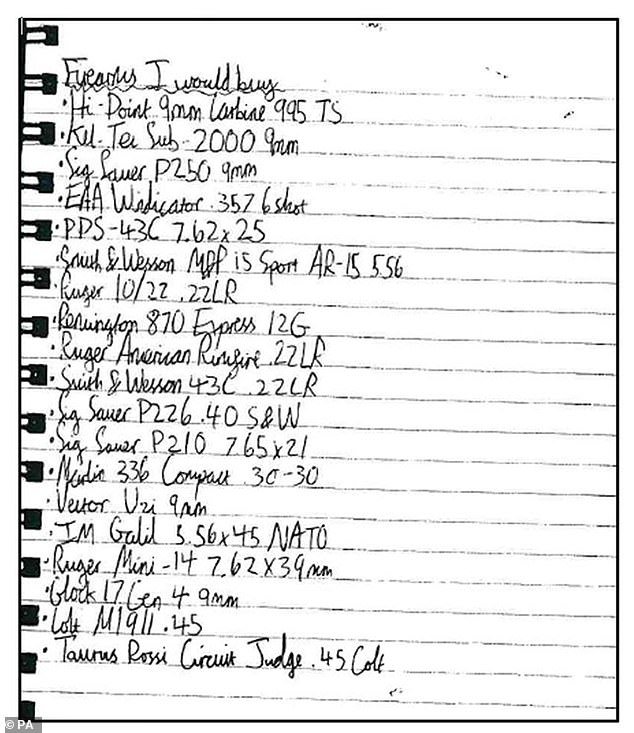 Firearms I would buy
· Hi-Point 9mm Carbine 995 TS
· Kel-Tec Sub-2000 9mm
· Sig Sauer P250 9mm
· EAA Windicator .357 6 shot
· PPS-43C 7.62x25
· Smith & Wesson M&P 15 Sport AR-15 5.56
· Ruger 10/22 .22LR
· Remington 870 Express 12G
· Ruger American Rimfire .22LR
· Smith & Wesson 43C .22LR
· Sig Sauer P226 .40 S&W
· Sig Sauer P210 7.65x21
· Marlin 336 Compact .30-30
· Vector Uzi 9mm
· IM Galil 5.56x45 NATO
· Ruger Mini-14 7.62x39mm
· Glock 17 Gen 4 9mm
· Colt M1911 .45
· Taurus Rossi Circuit Judge .45 Colt
© PA